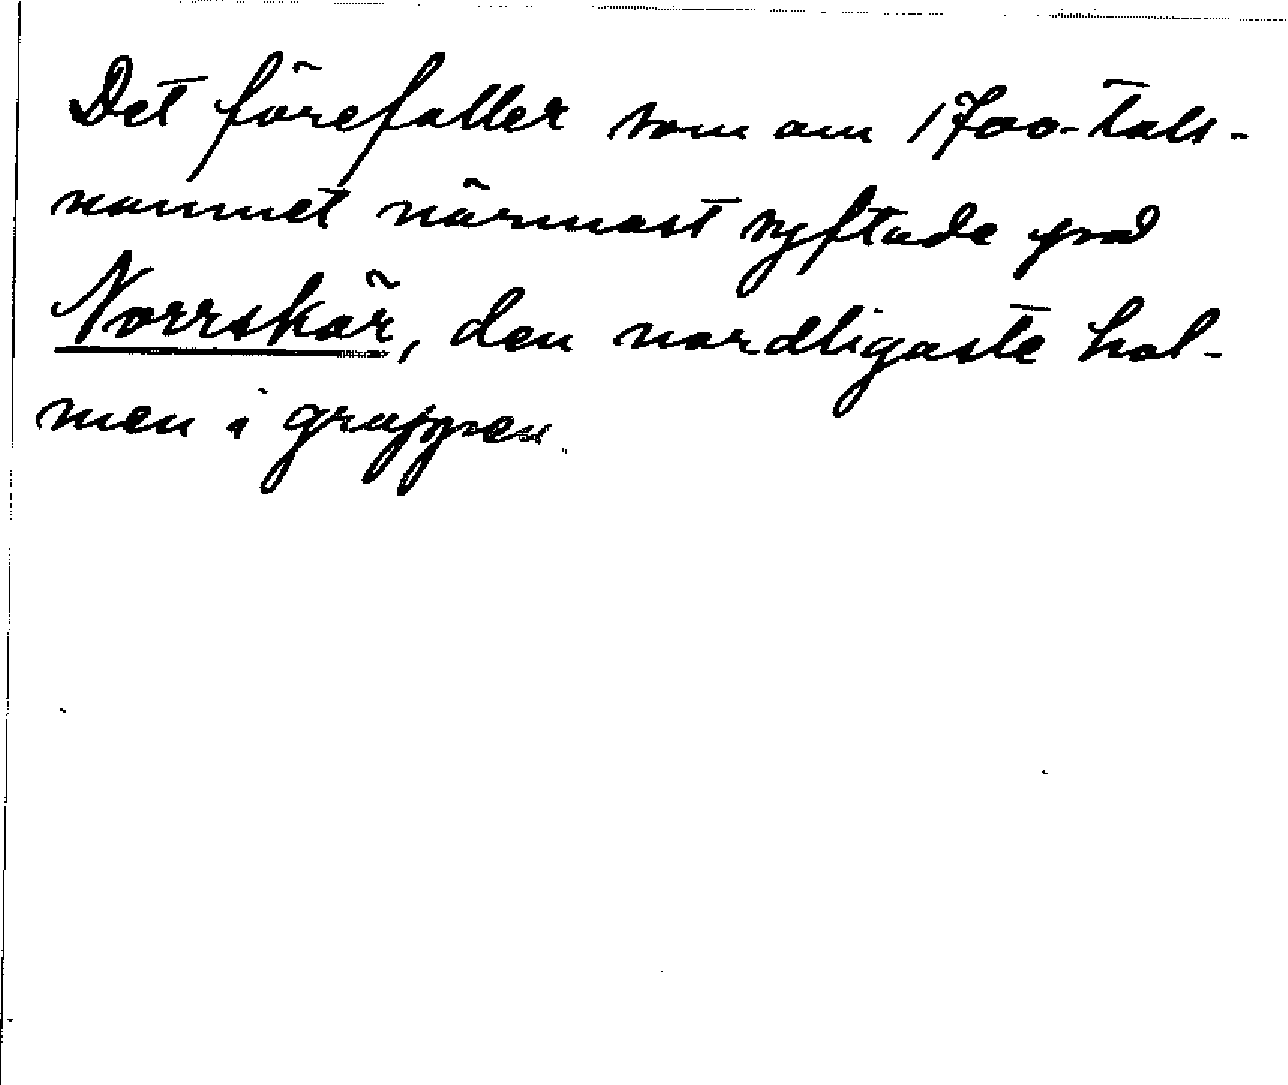 Det förefaller som om 1700-tals-
namnet närmast syftade på
Norrskär, den nordligaste hol-
men i gruppen.